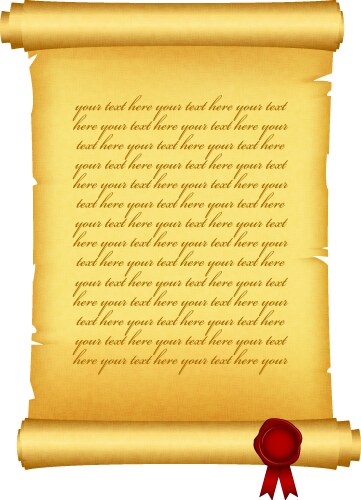 your text here your text here your text
here your text here your text here your
text here your text here your text here
your text here your text here your text
here your text here your text here your
text here your text here your text here
your text here your text here your text
here your text here your text here your
text here your text here your text here
your text here your text here your text
here your text here your text here your
text here your text here your text here
your text here your text here your text
here your text here your text here your